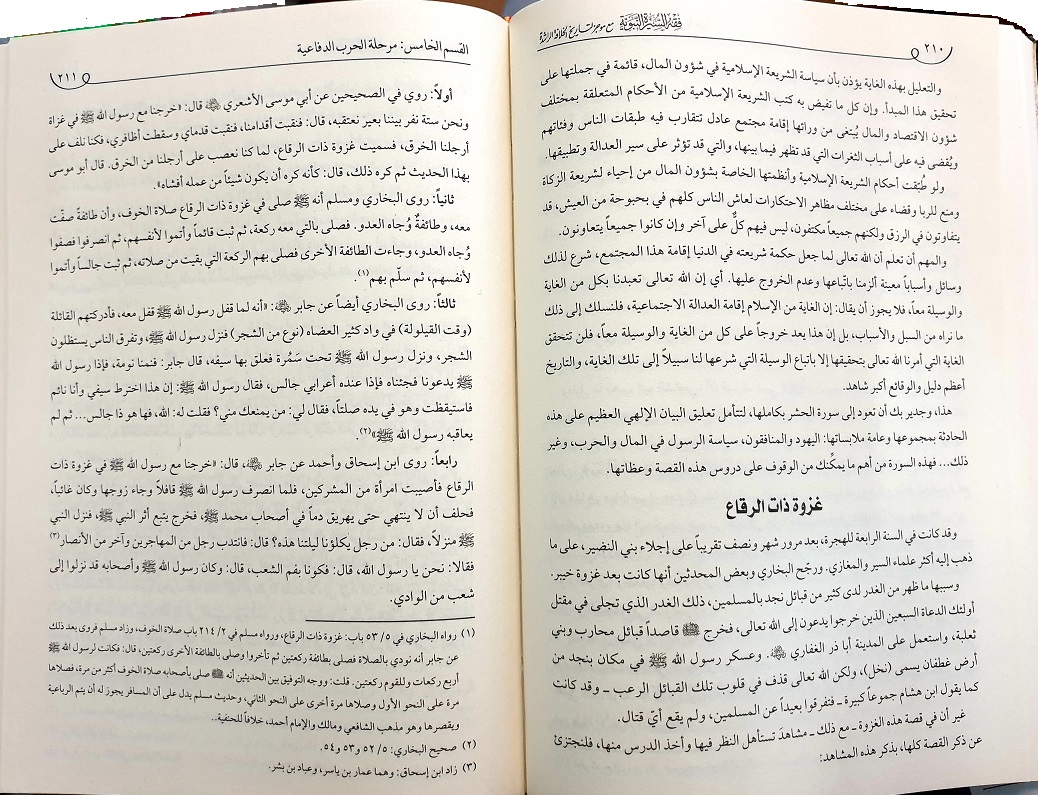 ٢١٠
فقه السيرة النبوية مع موجز لتاريخ الخلافة الراشدة
والتعليل بهذه الغاية يؤذن بأن سياسة الشريعة الإسلامية في شؤون المال، قائمة في جملتها على
تحقيق هذا المبدأ. وإن كل ما تفيض به كتب الشريعة الإسلامية من الأحكام المتعلقة بمختلف
شؤون الاقتصاد والمال يُبتغى من ورائها إقامة مجتمع عادل تتقارب فيه طبقات الناس وفئاتهم
ويُقضى فيه على أسباب الثغرات التي قد تظهر فيما بينها، والتي قد تؤثر على سير العدالة وتطبيقها.
ولو طُبّقت أحكام الشريعة الإسلامية وأنظمتها الخاصة بشؤون المال من إحياء لشريعة الزكاة
ومنع للربا وقضاء على مختلف مظاهر الاحتكارات لعاش الناس كلهم في بحبوحة من العيش، قد
يتفاوتون في الرزق ولكنهم جميعاً مكتفون، ليس فيهم كلٌّ على آخر وإن كانوا جميعاً يتعاونون.
والمهم أن تعلم أن الله تعالى لما جعل حكمة شريعته في الدنيا إقامة هذا المجتمع، شرع لذلك
وسائل وأسباباً معينة ألزمنا باتّباعها وعدم الخروج عليها. أي إن الله تعالى تعبدنا بكل من الغاية
والوسيلة معاً، فلا يجوز أن يقال: إن الغاية من الإسلام إقامة العدالة الاجتماعية، فلنسلك إلى ذلك
ما نراه من السبل والأسباب، بل إن هذا يعد خروجاً على كل من الغاية والوسيلة معاً، فلن تتحقق
الغاية التي أمرنا الله تعالى بتحقيقها إلا باتباع الوسيلة التي شرعها لنا سبيلاً إلى تلك الغاية، والتاريخ
أعظم دليل والوقائع أكبر شاهد.
هذا، وجدير بك أن تعود إلى سورة الحشر بكاملها، لتتأمل تعليق البيان الإلهي العظيم على هذه
الحادثة بمجموعها وعامة ملابساتها: اليهود والمنافقون، سياسة الرسول في المال والحرب، وغير
ذلك... فهذه السورة من أهم ما يمكّنك من الوقوف على دروس هذه القصة وعظاتها.
غزوة ذات الرقاع
وقد كانت في السنة الرابعة للهجرة، بعد مرور شهر ونصف تقريباً على إجلاء بني النضير، على ما
ذهب إليه أكثر علماء السير والمغازي. ورجّح البخاري وبعض المحدثين أنها كانت بعد غزوة خيبر.
وسببها ما ظهر من الغدر لدى كثير من قبائل نجد بالمسلمين، ذلك الغدر الذي تجلى في مقتل
أولئك الدعاة السبعين الذين خرجوا يدعون إلى الله تعالى، فخرج ﷺ قاصداً قبائل محارب وبني
ثعلبة، واستعمل على المدينة أبا ذر الغفاري رضي الله عنه. وعسكر رسول الله ﷺ في مكان بنجد من
أرض غطفان يسمى (نخل)، ولكن الله تعالى قذف في قلوب تلك القبائل الرعب ـ وقد كانت
كما يقول ابن هشام جموعاً كبيرة ـ فتفرقوا بعيداً عن المسلمين، ولم يقع أيّ قتال.
غير أن في قصة هذه الغزوة ـ مع ذلك ـ مشاهدَ تستأهل النظر فيها وأخذ الدرس منها، فلنجتزئ
عن ذكر القصة كلها، بذكر هذه المشاهد:
القسم الخامس: مرحلة الحرب الدفاعية
٢١١
أولاً: روي في الصحيحين عن أبي موسى الأشعري رضي الله عنه قال: «خرجنا مع رسول الله ﷺ في غزاة
ونحن ستة نفر بيننا بعير نعتقبه، قال: فنقبت أقدامنا، فنقبت قدماي وسقطت أظافري، فكنا نلف على
أرجلنا الخرق، فسميت غزوة ذات الرقاع، لما كنا نعصب على أرجلنا من الخرق. قال أبو موسى
بهذا الحديث ثم كره ذلك، قال: كأنه كره أن يكون شيئاً من عمله أفشاه».
ثانياً: روى البخاري ومسلم أنه ﷺ صلى في غزوة ذات الرقاع صلاة الخوف، وأن طائفةً صفّت
معه، وطائفةٌ وُجاه العدو. فصلى بالتي معه ركعة، ثم ثبت قائماً وأتموا لأنفسهم، ثم انصرفوا فصفوا
وُجاه العدو، وجاءت الطائفة الأخرى فصلى بهم الركعة التي بقيت من صلاته، ثم ثبت جالساً وأتموا
لأنفسهم، ثم سلّم بهم (١).
ثالثاً: روى البخاري أيضاً عن جابر رضي الله عنه: «أنه لما قفل رسول الله ﷺ قفل معه، فأدركتهم القائلة
(وقت القيلولة) في واد كثير العضاه (نوع من الشجر) فنزل رسول الله ﷺ، وتفرق الناس يستظلون
الشجر، ونزل رسول الله ﷺ تحت سَمُرة فعلق بها سيفه، قال جابر: فنمنا نومة، فإذا رسول الله
ﷺ يدعونا فجئناه فإذا عنده أعرابي جالس، فقال رسول الله ﷺ: إن هذا اخترط سيفي وأنا نائم
فاستيقظت وهو في يده صلتاً، فقال لي: من يمنعك مني؟ فقلت له: الله، فها هو ذا جالس... ثم لم
يعاقبه رسول الله ﷺ» (٢).
رابعاً: روى ابن إسحاق وأحمد عن جابر رضي الله عنه، قال: «خرجنا مع رسول الله ﷺ في غزوة ذات
الرقاع فأصيبت امرأة من المشركين، فلما انصرف رسول الله ﷺ قافلاً وجاء زوجها وكان غائباً،
فحلف أن لا ينتهي حتى يهريق دماً في أصحاب محمد ﷺ، فخرج يتبع أثر النبي ﷺ، فنزل النبي
ﷺ منزلاً، فقال: من رجل يكلؤنا ليلتنا هذه؟ قال: فانتدب رجل من المهاجرين وآخر من الأنصار (٣)
فقالا: نحن يا رسول الله، قال: فكونا بفم الشعب، قال: وكان رسول الله ﷺ وأصحابه قد نزلوا إلى
شعب من الوادي.
(١) رواه البخاري في ٥/ ٥٣ باب: غزوة ذات الرقاع، ورواه مسلم في ٢/ ٢١٤ باب صلاة الخوف، وزاد مسلم فروى بعد ذلك
عن جابر أنه نودي بالصلاة فصلى بطائفة ركعتين ثم تأخروا وصلى بالطائفة الأخرى ركعتين، قال: فكانت لرسول الله ﷺ
أربع ركعات وللقوم ركعتين. قلت: ووجه التوفيق بين الحديثين أنه ﷺ صلى بأصحابه صلاة الخوف أكثر من مرة، فصلاها
مرة على النحو الأول وصلاها مرة أخرى على النحو الثاني، وحديث مسلم يدل على أن المسافر يجوز له أن يتم الرباعية
ويقصرها وهو مذهب الشافعي ومالك والإمام أحمد، خلافاً للحنفية..
(٢) صحيح البخاري: ٥/ ٥٢ و٥٣ و٥٤.
(٣) زاد ابن إسحاق: وهما عمار بن ياسر، وعباد بن بشر.